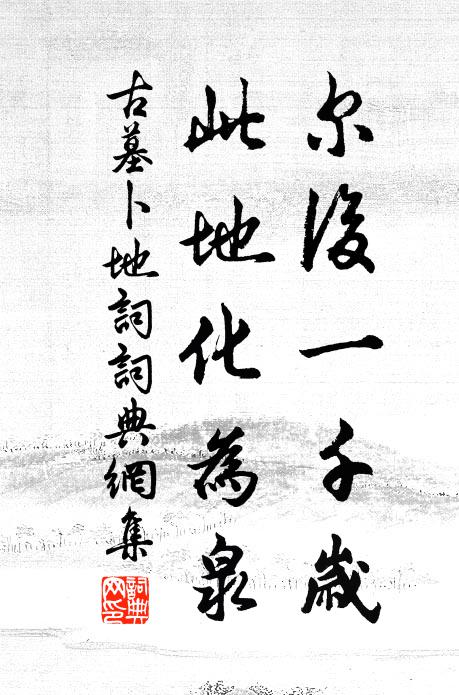 尔後一千歲
此地化為泉
古墓卜地詞詞典網集
詞典
网印